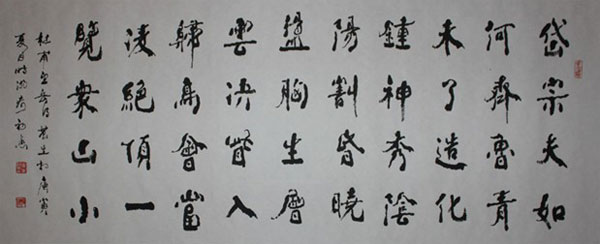 岱宗夫如
何齊魯青
未了造化
鍾神秀陰
陽割昏曉
盪胸生層
雲決眥入
歸鳥會當
凌絕頂一
覽衆山小
杜甫望岳詩 庚寅
夏日